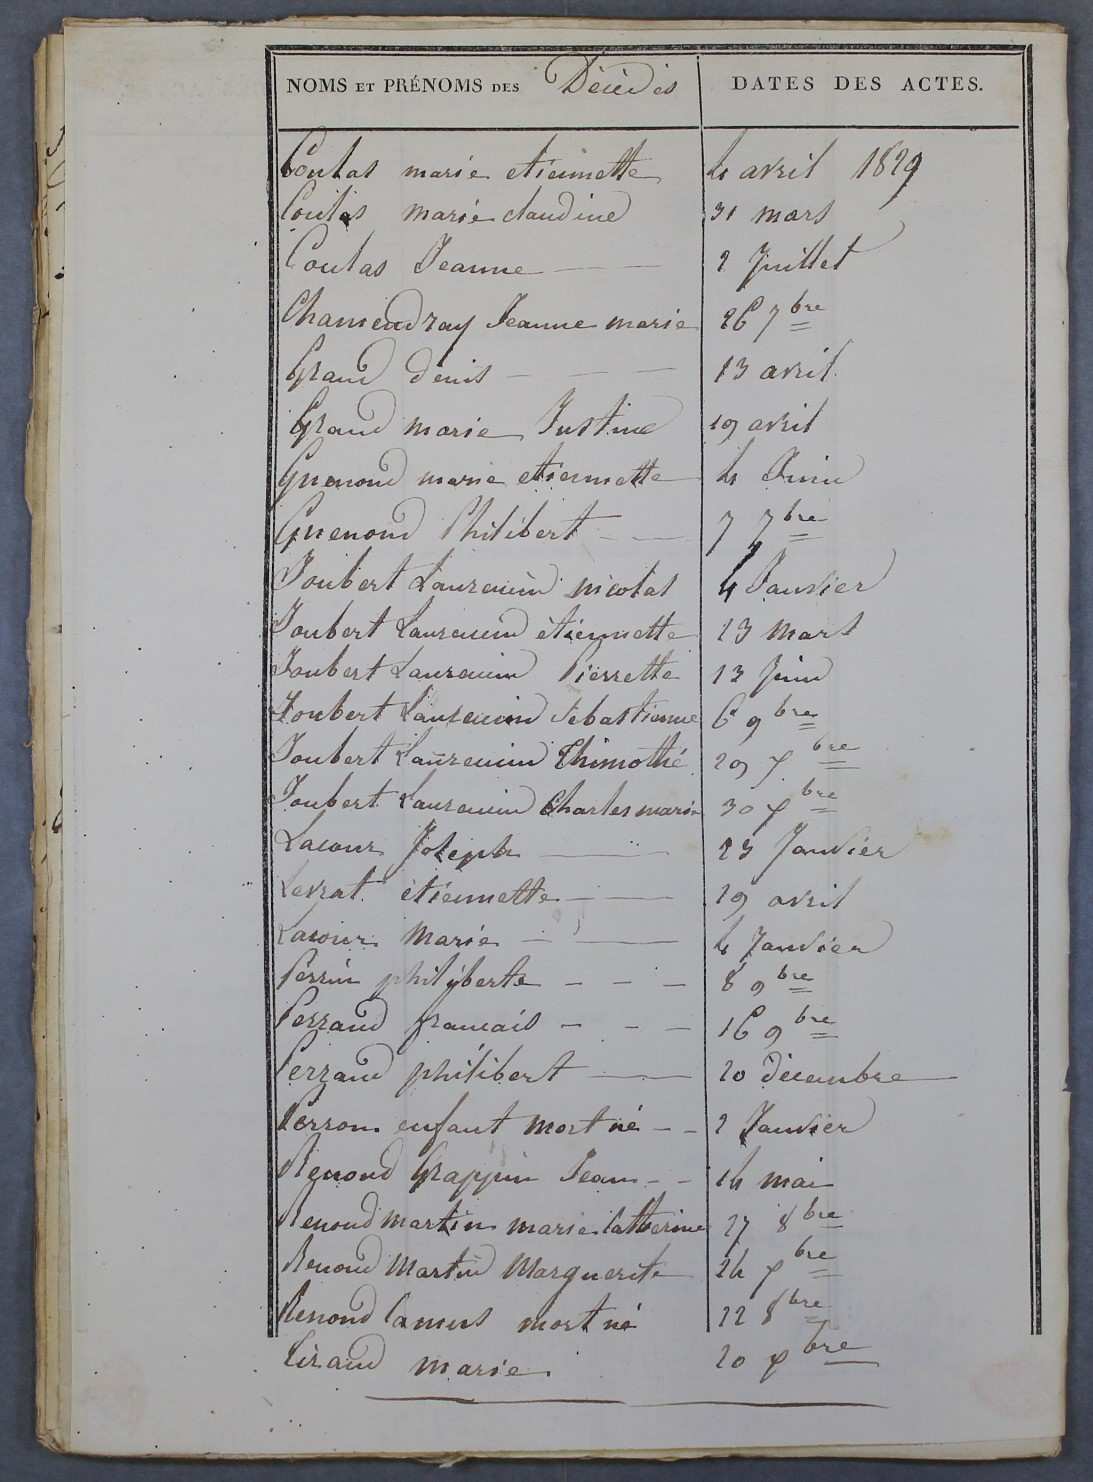 NOMS ET PRÉNOMS DES Décédés DATES DES ACTES.
Coulas marie etiennette 4 avril 1829
Coulas marie claudine 31 mars
Coulas Jeanne 2 Juillet
Chamendray Jeanne marie 26 7bre
Grand denis 13 avril
Grand marie Justine 19 avril
Guenond marie etiennette 4 Juin
Guenond Philibert 7 7bre
Joubert Laurencin nicolas 4 Janvier
Joubert Laurencin étiennette 23 mars
Joubert Laurencin Pierrette 13 Juin
Joubert Laurencin Sebastienne 6 9bre
Joubert Laurencin Thimothé 29 xbre
Joubert Laurencin Charles marie 30 xbre
Lacour Joseph 23 Janvier
Levrat étiennette 29 avril
Lacour Marie 4 Janvier
Perrin philiberte 8 9bre
Perraud francais 16 9bre
Perraud philibert 20 décembre
Perron enfant mort né 2 Janvier
Renond Grappin Jean 14 mai
Renoud martin marie Catherine 27 8bre
Renoud Martin Marguerite 24 xbre
Renond Camus mort né 22 8bre
Tiraud marie 20 xbre